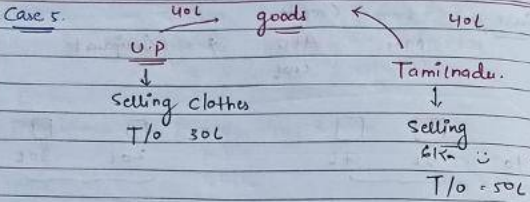 Case 5. 40L goods 40L
U.P
Tamilnadu.
Selling Clothes
T/o 30L
Selling
T/o = 50L